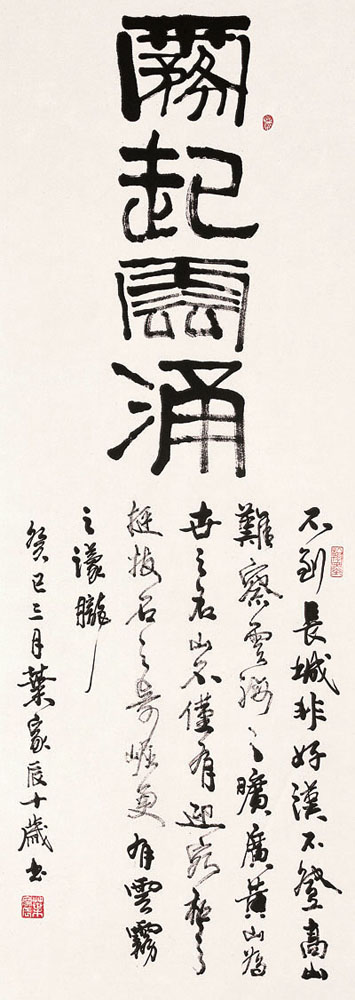 霧起雲涌
不到長城非好漢不登高山
難察雲海之曠廣黃山為
世之名山不僅有迎客松之
挺拔石之奇崛更有雲霧
之濛朧
癸巳三月葉家辰十歲書